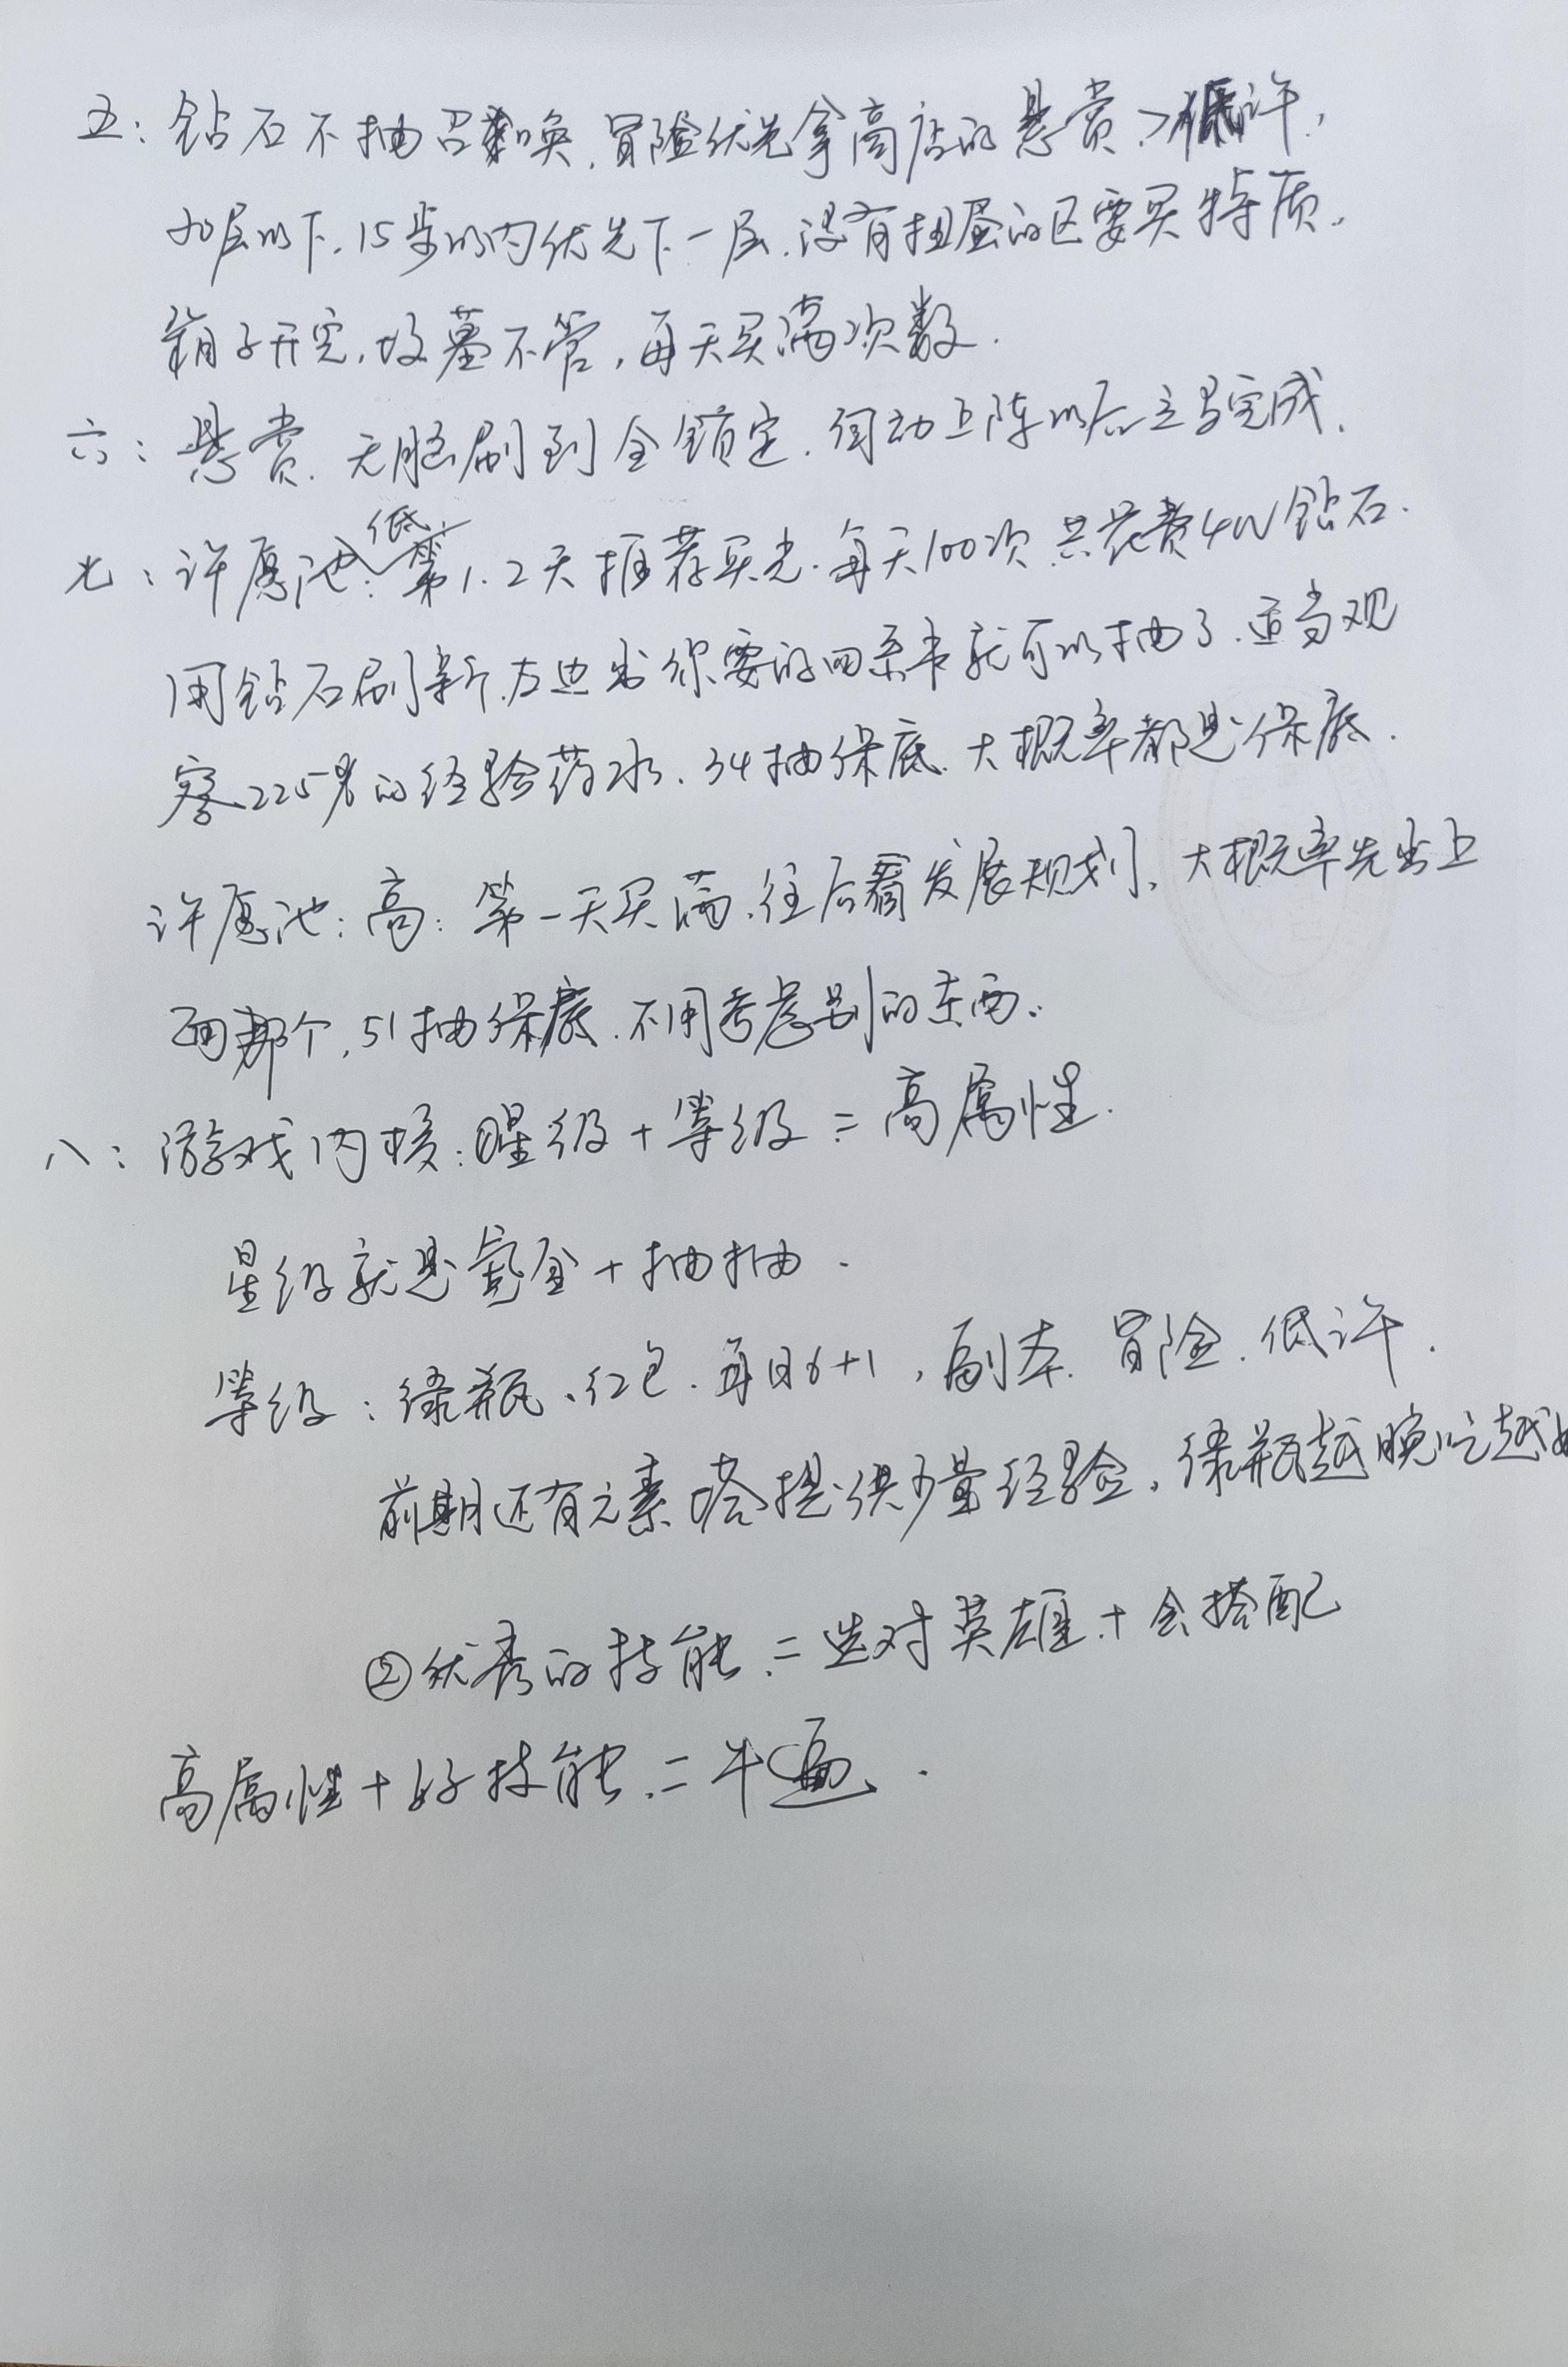 五：钻石不抽召唤，冒险优先拿高店的悬赏>低许，
层以下，15步以内优先下一层，没有扭蛋的区要买特质，
箱子开完，坟墓不管，每天买满次数．
六：悬赏．无脑刷到全锁定．自动上阵以后立马完成．
七：许愿池：低：第1.2天推荐买光．每天100次．共花费4W钻石．
用钻石刷新，左边出你要的四系书就可以抽了．适当观
察225%的经验药水．34抽保底．大概率都是保底．
许愿池：高：第一天买满，往后看发展规划，大概率先出上
面那个，51抽保底．不用考虑别的东西．
八：游戏内核：①星级+等级=高属性．
星级就是氪金+抽抽．
等级：绿瓶、红包．每日6+1，副本．冒险．低许．
前期还有元素塔提供少量经验，绿瓶越晚吃越好
②优秀的技能=选对英雄+会搭配
高属性+好技能=牛逼．